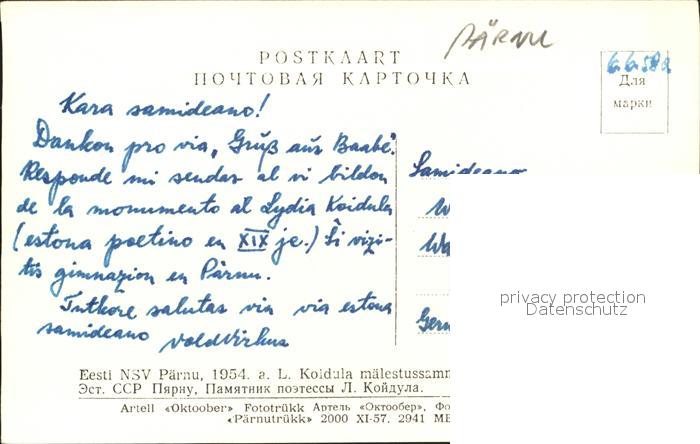 PÄRNU
POSTKAART
ПОЧТОВАЯ КАРТОЧКА
6.6.58a
Для
марки
Kara samideano!
Dankon pro via „Gruß aus Baabe".
Responde mi sendas al vi bildon
de la monumento al Lydia Koidula
(estona poetino en XIX jc.) Ŝi vizi-
tis gimnazion en Pärnu.
Tutkore salutas vin via estona
samideano
Samideano
W
Wa
Gern
privacy protection
Datenschutz
Eesti NSV Pärnu, 1954. a. L. Koidula mälestussamm
Эст. ССР Пярну, Памятник поэтессы Л. Койдула.
Artell «Oktoober» Fototrükk Артель «Октообер», Фо
«Pärnutrükk» 2000 XI-57. 2941 МВ